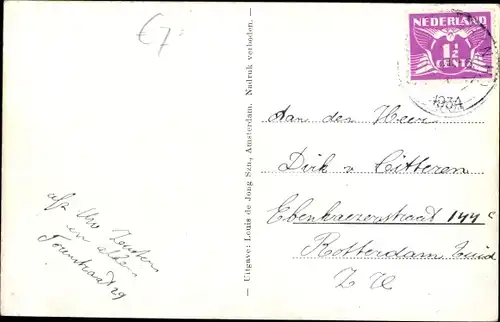 €7
NEDERLAND
1½
CENT
1934
Uitgave: Louis de Jong Szn., Amsterdam. Nadruk verboden.
Aan den Heer
Dirk v Citteren
Ebenhaezerstraat 144 c
Rotterdam Zuid
Z H
afz
en allen
29